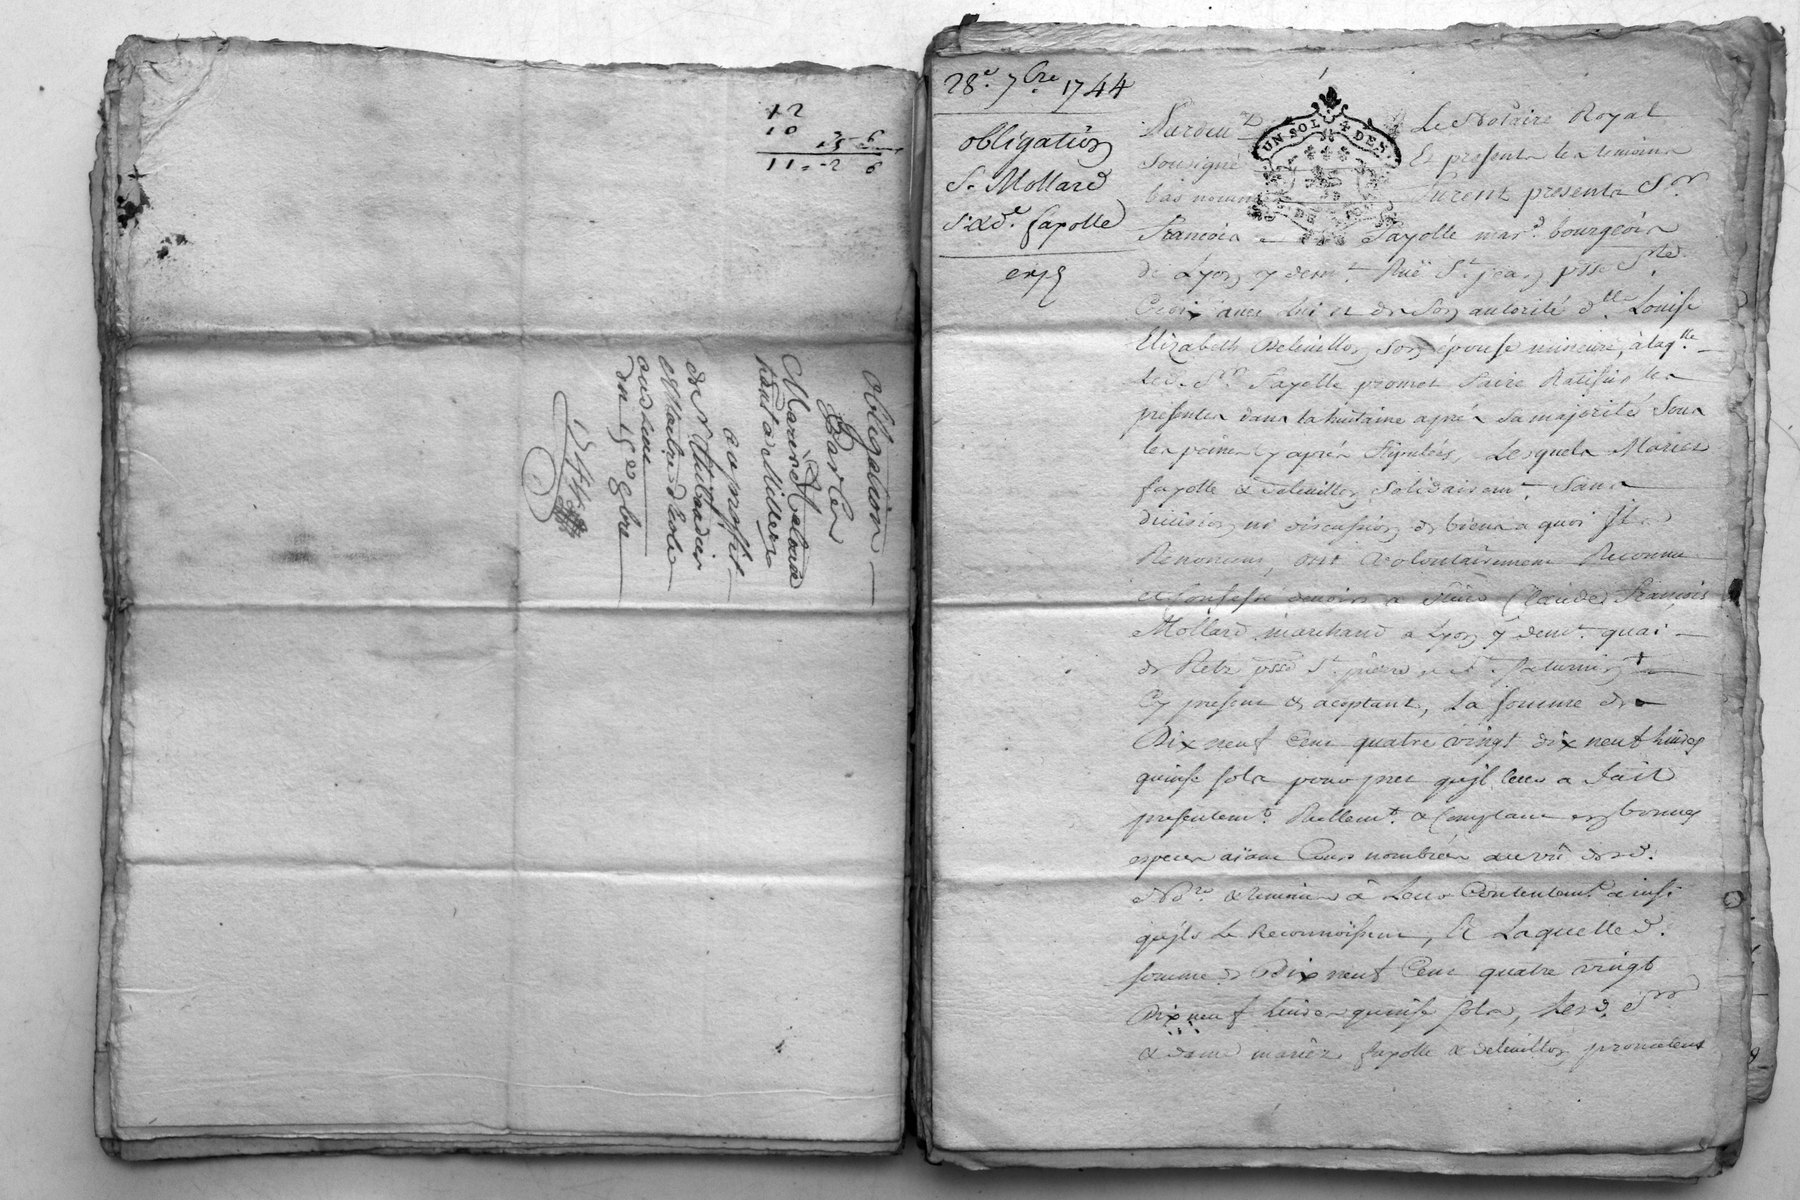 12
10
25 6
11 .. 2 6
Obligation
Par les
Mariés
a Millery
au proffit
de Sr
du 15e 8bre
1744
28e. 7bre. 1744
obligation
Sr. Mollard
Sr. & de. fayolle
expé
UN SOL 4 DES.
Pardevt Le Notaire Royal
Sousigné Et presents les temoins
bas nommés furent presents Sr
François Fayolle mard. bourgeois
de Lyon y demt. Ruë St. jean psse Ste.
Croix avec lui et de Son autorité dlle. Louise
Elizabeth Deleuillon Son épouse mineure, à laqlle
Led. Sr Fayolle promet faire Ratifier les
présentes dans la huitaine après Sa majorité Sous
les peines cy après Stipulées, Lesquels Mariés
fayolle & deleuillon Solidairemt. Sans
division ni discussion de biens a quoi Ils
Renoncent, ont Volontairement Reconnu
et Confessé devoir a Sieur Claude François
Mollard marchand a Lyon y demt. quai
de Retz psse St. pierre & St. Saturnin
Cy present & aceptant, La somme de
Dix neuf Cent quatre vingt dix neuf livres
quinse sols pour pret qu'jl leur a fait
presentemt. Réellemt. & Comptant en bonnes
especes aÿant Cours nombrées au vû dud.
Nore & temoins à Leur Contentemt. ainsi
qu'jls Le Reconnoissent, & Laquelle d.
somme de Dix neuf Cent quatre vingt
Dix neuf livres quinse sols, Lesd. Sr
& dame mariéz fayolle & deleuillon promettent